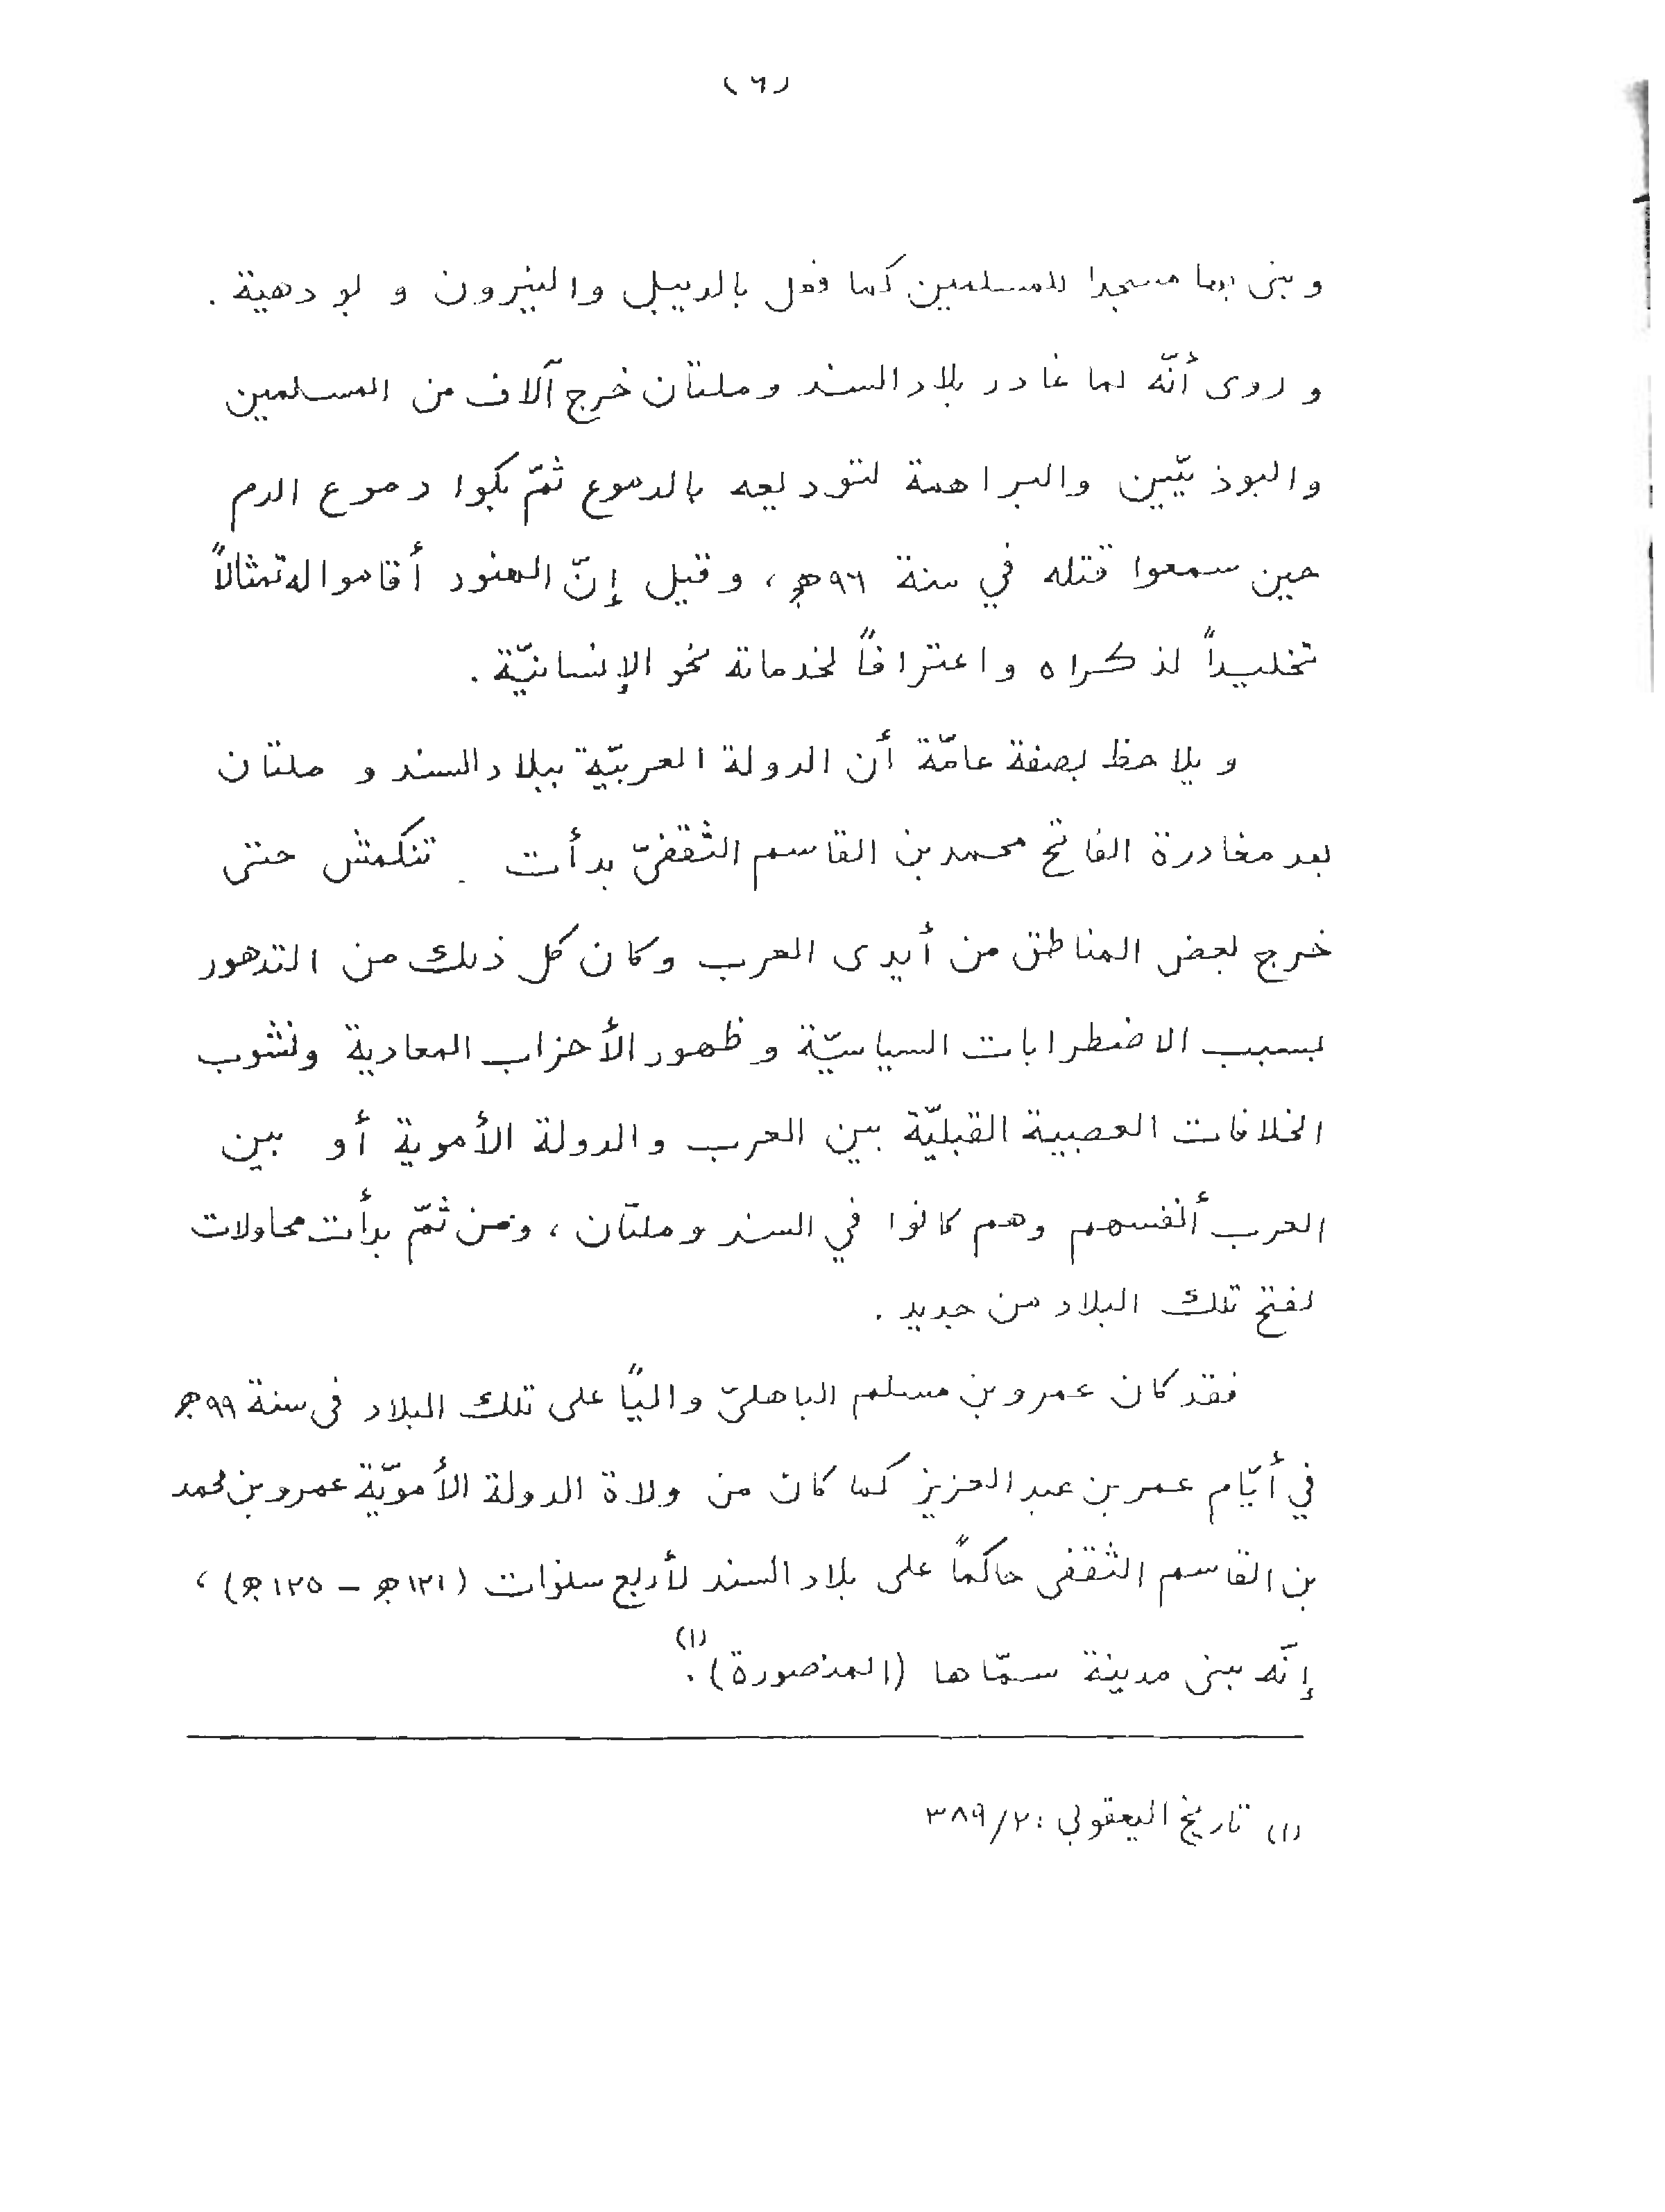 (٦)
و بنى بها مسجدا للمسلمين كما فعل بالديبل والنيرون و لو دهية .
و روى أنّه لما غادر بلاد السند وملتان خرج آلاف من المسلمين
والبوذيّين والبراهمة لتوديعه بالدموع ثمّ بكوا دموع الدم
حين سمعوا قتله في سنة ٩٦هـ ، وقيل إنّ الهنود أقاموا له تمثالاً
تخليداً لذكراه واعترافاً لخدماته نحو الإنسانيّة .
و يلاحظ بصفة عامّة أن الدولة العربيّة ببلاد السند و ملتان
بعد مغادرة الفاتح محمد بن القاسم الثّقفىّ بدأت تنكمش حتى
خرج بعض المناطق من أيدى العرب وكان كل ذلك من التدهور
بسبب الاضطرابات السياسيّة و ظهور الأحزاب المعادية ونشوب
الخلافات العصبية القبليّة بين العرب والدولة الأموية أو بين
العرب أنفسهم وهم كانوا في السند وملتان ، ومن ثمّ بدأت محاولات
لفتح تلك البلاد من جديد .
فقد كان عمرو بن مسلم الباهلىّ واليًا على تلك البلاد فى سنة ٩٩هـ
في أيّام عمر بن عبد العزيز كما كان من ولاة الدولة الأمويّة عمرو بن محمد
بن القاسم الثقفى حاكماً على بلاد السند لأربع سنوات (١٢١هـ – ١٢٥هـ) ،
إنّه بنى مدينة سمّاها (المنصورة) .(١)
(١) تاريخ اليعقوبى : ٣٨٩/٢